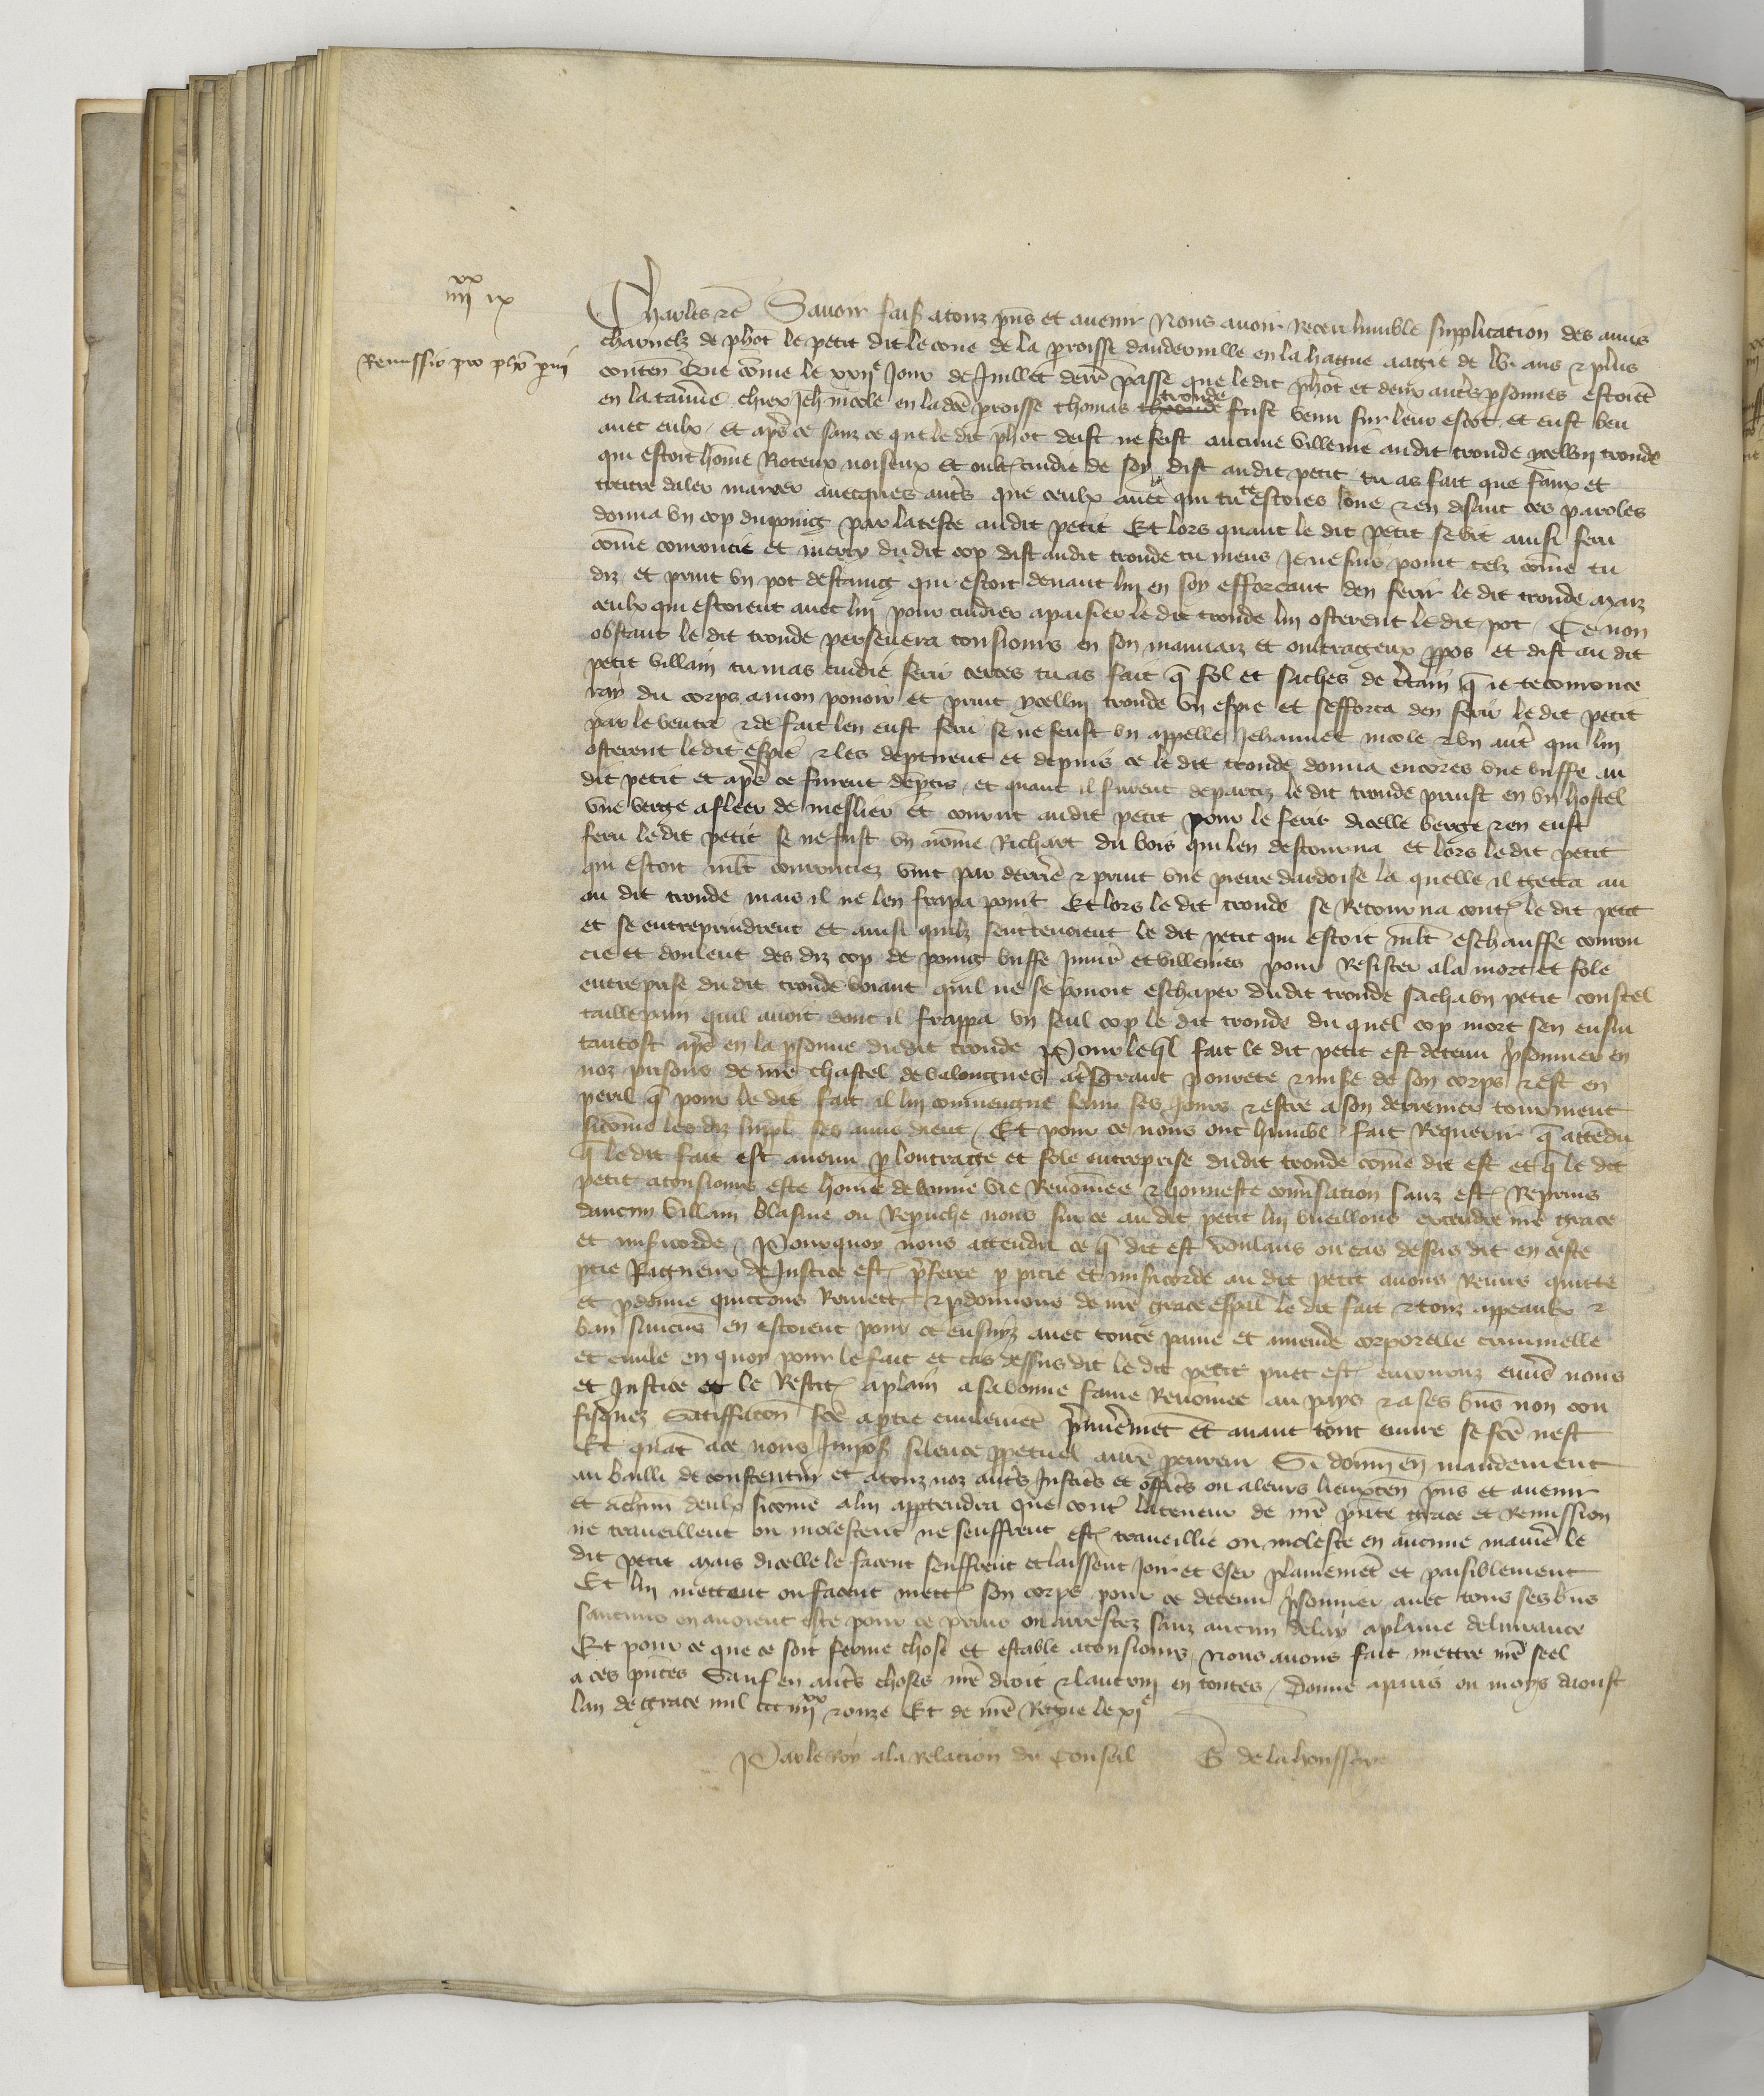 xx
iiii ix
Remissio pro pho pmi
Charles etc Savoir faiss atouz pns et avenir Nous avoir receu humble supplication des amis
charnelz de phot le petit dit le cone de la proisse danderville en la hague aagie de lvi ans & plus
conten Que come le xxiie Jour de Juillet derr passe que le dit phot et deux autrs psonnes estoiet
en la taverne chiex Jeh nicole en la dce proisse thomas tronde fust venu sur leur escot et eust beu
avec eulx et apres ce sanz ce que le dit phot deist ne feist aucune villenie audit tronde ycellui tronde
qui estoit home Roteux noiseux et oultrecuidie de soy dist audit petit tu as fait que faux et
traitre daler marcer avecques autrs que ceulx avec qui tu te estoies loue & en disant ces paroles
donna un cop du poing par la teste audit petit Et lors quant le dit petit se vit ainsi feru
come couroucie et du dit cop dist audit tronde tu mens Je ne suis point telz come tu
diz et print un pot destaing qui estoit devant lui en soy efforcant den ferir le dit tronde Maiz
ceulx qui estoient avec lui pour cuidier apaisier le dit tronde lui osterent le dit pot Ce non
obstant le dit tronde persevera tousiours en son mauvaiz et oultrageux ppos et dist au dit
petit villain tu mas cuidie ferir certes tu as fait q fol et saches de certain q ie te couronce
ray du corps a mon pouoir et print ycellui tronde un espie et sefforca den ferir le dit petit
par le ventre & de fait len eust feru se ne feust un appelle Jehannet nicole & un autr qui lui
osterent le dit espie & les deptirent et depuis ce le dit tronde donna encores une buffe au
dit petit et apres ce furent deptis et quant il furent departiz le dit tronde prinst en un hostel
une verge a fleer de meslier et courut audit petit pour le ferir dicelle verge & en eust
feru le dit petit se ne fust un nome Richart du bois qui len destourna et lors le dit petit
qui estoit mlt courouciez vint par derrie & print une pierre dardoise la quelle il getta au
au dit tronde mais il ne len frapa point Et lors le dit tronde se Retourna contre le dit petit
et se entreprindrent et ainsi quilz sentretenoient le dit petit qui estoit mlt eschauffe courou
cie et doulent des diz cop de poing buffe Iniur et villenies pour Resister a la mort et fole
entreprise du dit tronde voiant quil ne se pouoit eschaper dudit tronde sacha un petit coustel
taillepain quil avoit dont il frappa un seul cop le dit tronde du quel cop mort sen ensui
tantost apres en la psonne dudit tronde Pour leql fait le dit petit est detenu prisonnier en
noz prisons de nre chastel de valongnes a tresgrant pourete & mise de son corps & est en
peril q pour le dit fait il lui conviengne fenir ses jours & estre a son derrenier tourment
sicome les diz suppl ses amis dient Et pour ce nous ont humbl fait Requerir q attedu
q le dit fait est avenu p loutrage et fole entreprise dudit tronde come dit est et q le dit
petit a tousiours este home de bonne vie Renomee & honneste conversation sanz estre Reprins
daucun villain blasme ou Repruche nous sur ce au dit petit lui vueillons extendre nre grace
et misericorde Pourquoy nous attendu ce q dit est voulans ou cas dessus dit en ceste
ptie Rigueur de Justice estre preferee p pitie et misericorde au dit petit avons Remis quitte
et pdonne quictons Remettons & pdonnons de nre grace espal le dit fait & touz appeaulx &
ban saucuns en estoient pour ce ensuiz avec toute paine et amende corporelle criminelle
et civile en quoy pour le fait et cas dessus dit le dit petit puet estre encouruz envrs nous
et Justice et le Restit a plain a sa bonne fame Renomee au pays & a ses bns non con
fisquez Satiffacon fce a ptie civilemet pmieremet et avant tout euvre se fce nest
Et quat a ce nous Imposs silence ppetuel a nre procureur Si donn en mandement
au bailli de constentin et a touz noz autrs Justicrs et officrs ou a leurs lieuxten pns et avenir
et a chun deulx sicome a lui appartendra que contr la teneur de nre pnte grace et Remission
ne traveillent ou molestent ne seuffrent estre traveillie ou moleste en aucune maniere le
dit petit Mais dicelle le facent seuffrent et laissent Joir et user plainemet et paisiblement
Et lui mettent ou facent mettre son corps pour ce detenu prisonnier avec tous ses bns
saucuns en avoient este pour ce prins ou arrestez sanz aucun delay a plaine delivrance
Et pour ce que ce soit ferme chose et estable a tousiours Nous avons fait mettre nre seel
a ces pntes Sauf en autrs choses nre droit & lautrui en toutes Donne a paris ou moys daoust
lan de grace mil ccc iiii xx & onze Et de nre Regne le xie
Par le Roy a la relacion du Conseil G de la houssaye